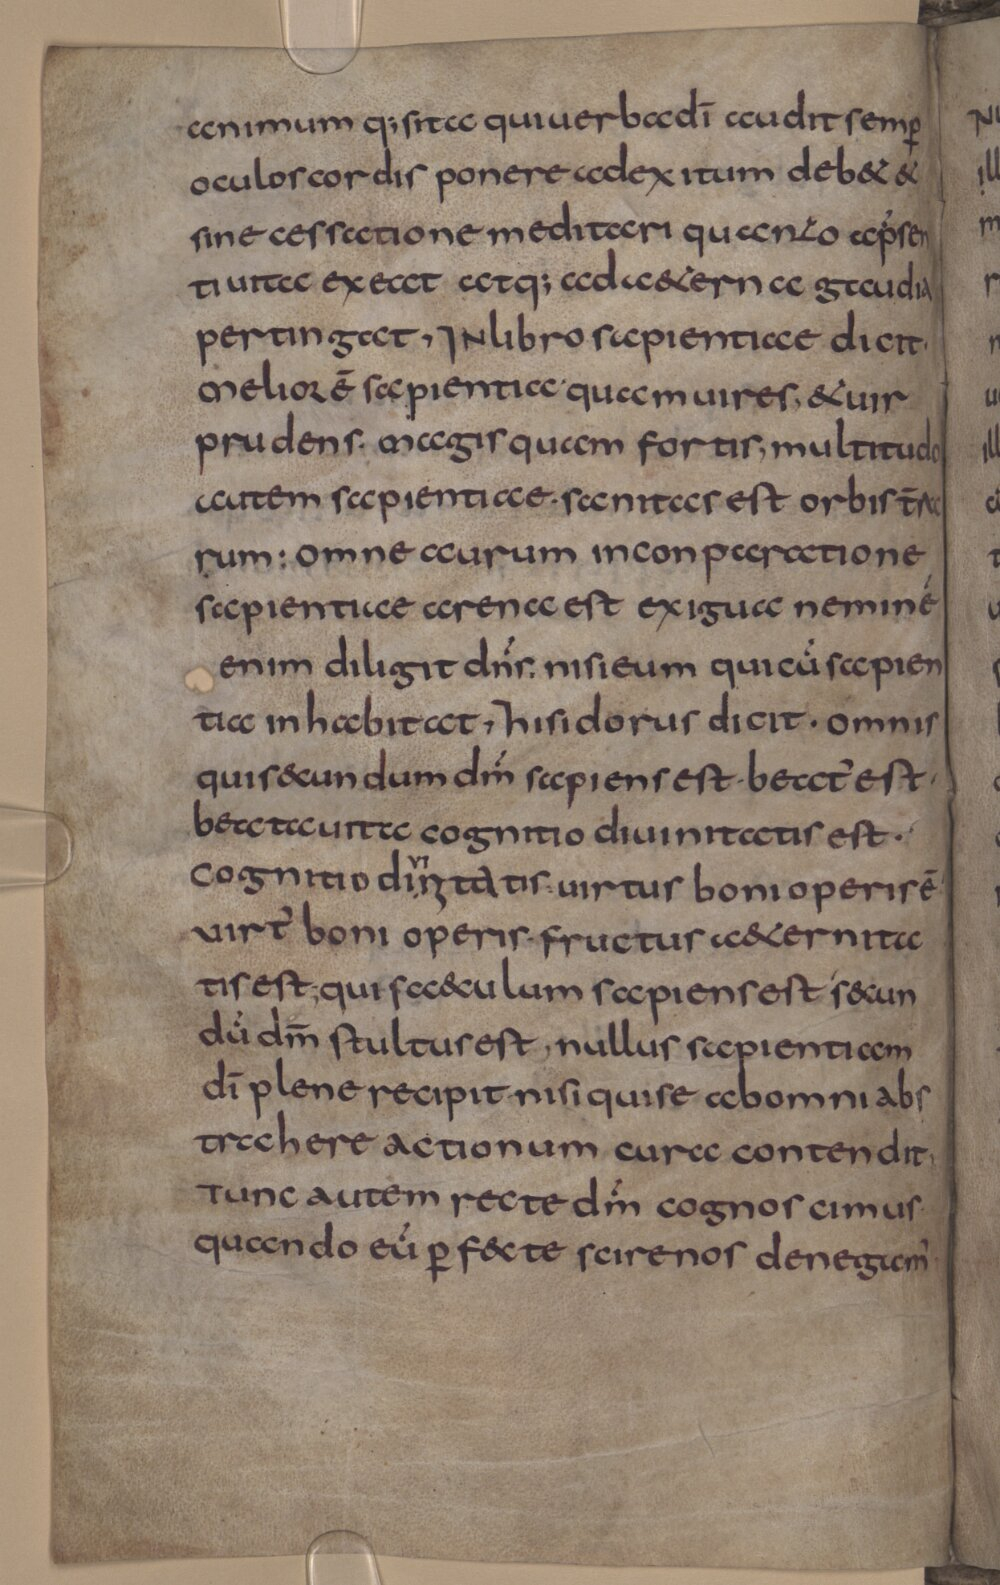 animum q; sita qui uerba dī audit semꝑ
oculos cordis ponere ad exitum deb& &
sine cessatione meditari quando a p̄sen
ti uita exeat atq; ad a&erna gaudia
pertingat, In libro sapientiae dicit.
Melior ē sapientia quam uires, & uir
prudens. magis quam fortis, multitudo
autem sapientiae. sanitas est orbis t̄ra
rum: omne aurum in conparatione
sapientiae arena est exigua neminē
enim diligit dn̄s. nisi eum qui cū sapien
tia inhabitat, hisidorus dicit. omnis
qui s&cundum dm̄ sapiens est. beat᾽ est.
beata uita cognitio diuinitatis est.
cognitio diuinitatis. uirtus boni operis ē
uirt᾽ boni operis. fructus a&ernita
tis est; qui sa&culum sapiens est s&cun
dū dm̄ stultus est, nullus sapientiam
dī plene recipit nisi qui se ab omni abs
trahere actionum cura contendit,
Tunc autem recte dm̄ cognoscimus
quando eū ꝑf&cte scire nos denegam᾽